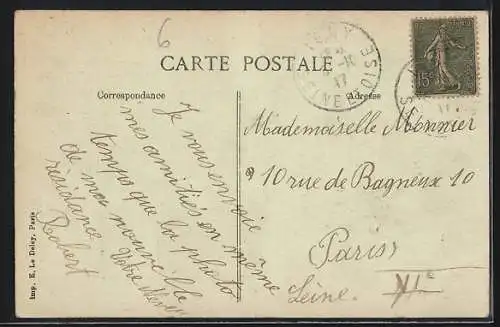 6
CARTE POSTALE
Correspondance
Adresse
SEINE ET OISE
15c
Je vous envoie
mes amitiés en même
temps que la photo
de ma nouvelle
résistance
Votre
Robert
Mademoiselle Monnier
10 rue de Bagneux 10
Paris
Seine.
Imp. E. Le Deley, Paris